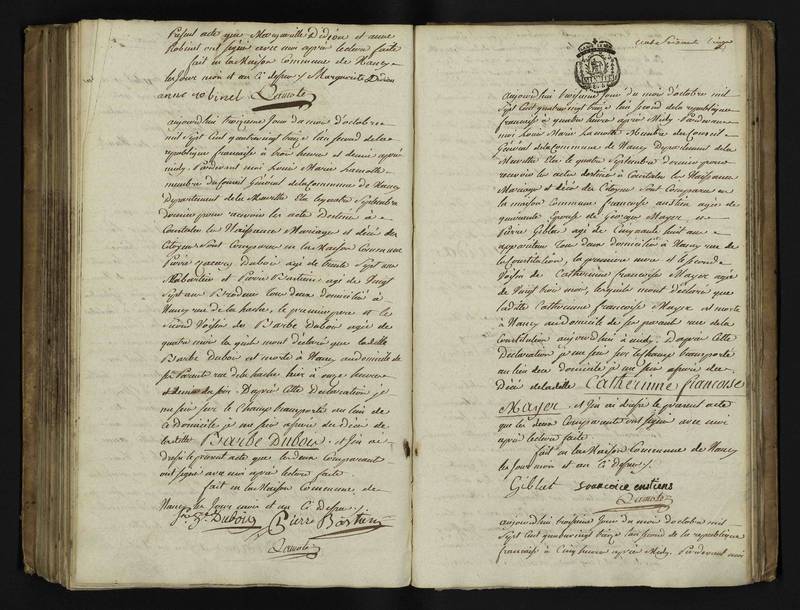 present acte que Margueritte Didion et anne
Robinet ont signé avec moi après lecture faite
fait en la Maison Commune de Nancy
les Jour mois et an Ci dessus / Marguerite Didion
anne robinet Lamotte
aujourdhui troizieme Jour du mois d'octobre
mil Sept Cent quatrevingt treize l'an Second de la
république française à trois heures et demie après
midy. Pardevant moi Louis Marie Lamotte
membre du Conseil Général de la Commune de Nancy
Departement de la Meurthe Elu le quatre Septembre
Dernier pour recevoir les acte Destinés à
Constater les Naissance Mariages et décès des
Citoyens Sont Comparus en la Maison Commune
Pierre Dubois agé de trente Sept ans
et Pierre Bastien agé de Vingt
Sept ans Brodeur tous deux domiciliés à
Nancy rue de la hache, le premier pere et le
Second Voisin de Barbe Dubois agée de
quatre mois les quels mont déclaré que la dette
Barbe Dubois est morte à Nancy au domicile de
ses Parents rue de la hache hier à onze heures
et demie du soir. D'après Cette Declaration je
me suis sur le Champ transporté au lieu de
Ce domicile je me suis assuré du décès de
la dette Barbe Dubois. et j'en ai
dressé le présent acte que les deux Comparants
ont signé avec moi après lecture faite
fait en la Maison Commune de
Nancy les Jour mois et an Ci dessus /
Dubois Pierre Bastien
Lamotte
Cent Soixante Vingt
aujourdhui troisieme Jour du mois d'octobre mil
Sept Cent quatrevingt treize l'an Second de la republique
française à quatre heures après Midy. Pardevant
moi Louis Marie Lamotte Membre du Conseil
Général de la Commune de Nancy Departement de la
Meurthe Elu le quatre Septembre dernier pour
recevoir les actes destinés à Constater les Naissance
Mariages et décès des Citoyens Sont Comparus en
la maison Commune françoise agée de
quarante Epouse de George Mayer, et
Pierre Giblat agé de Cinquante huit ans
tous deux domiciliés à Nancy rue de
la Constitution, la premiere mere et le Second
Voisin de Catherinne françoise Mayer agée
de Vingt trois mois, lesquels mont déclaré que
ladite Catherinne françoise Mayer est morte
à Nancy au domicile de ses parents rue de la
Constitution aujourdhui à midy. D'après Cette
Déclaration je me suis sur le champ transporté
au lieu de ce domicile je me suis assuré du
Décès de ladette Catherinne françoise
Mayer. et j'en ai dressé le présent acte
que les deux Comparants ont signé avec moi
après lecture faite
fait en la Maison Commune de Nancy
les Jour mois et an Ci dessus /.
Giblat
Lamotte
aujourdhui troisieme Jour du mois doctobre mil
Sept Cent quatrevingt treize l'an Second de la republique
française à Cinq heures après Midy. Pardevant moi